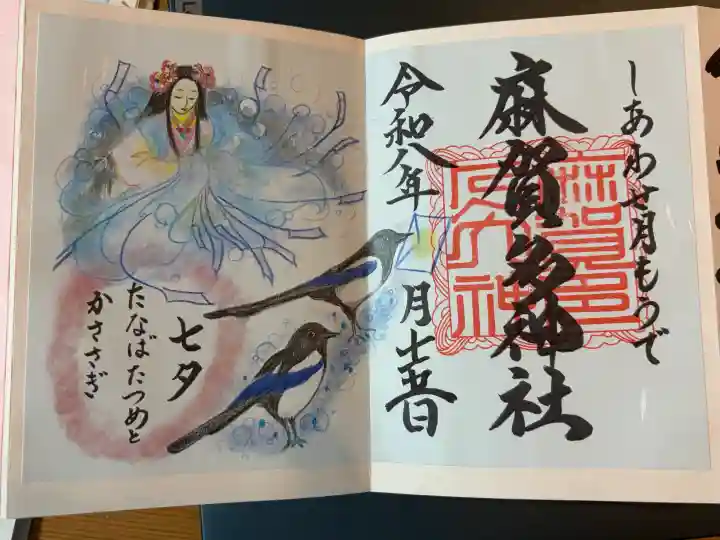 しあわせ月もうで
麻賀多神社
令和八年
月
日
七夕
たなばたつめと
かささぎ